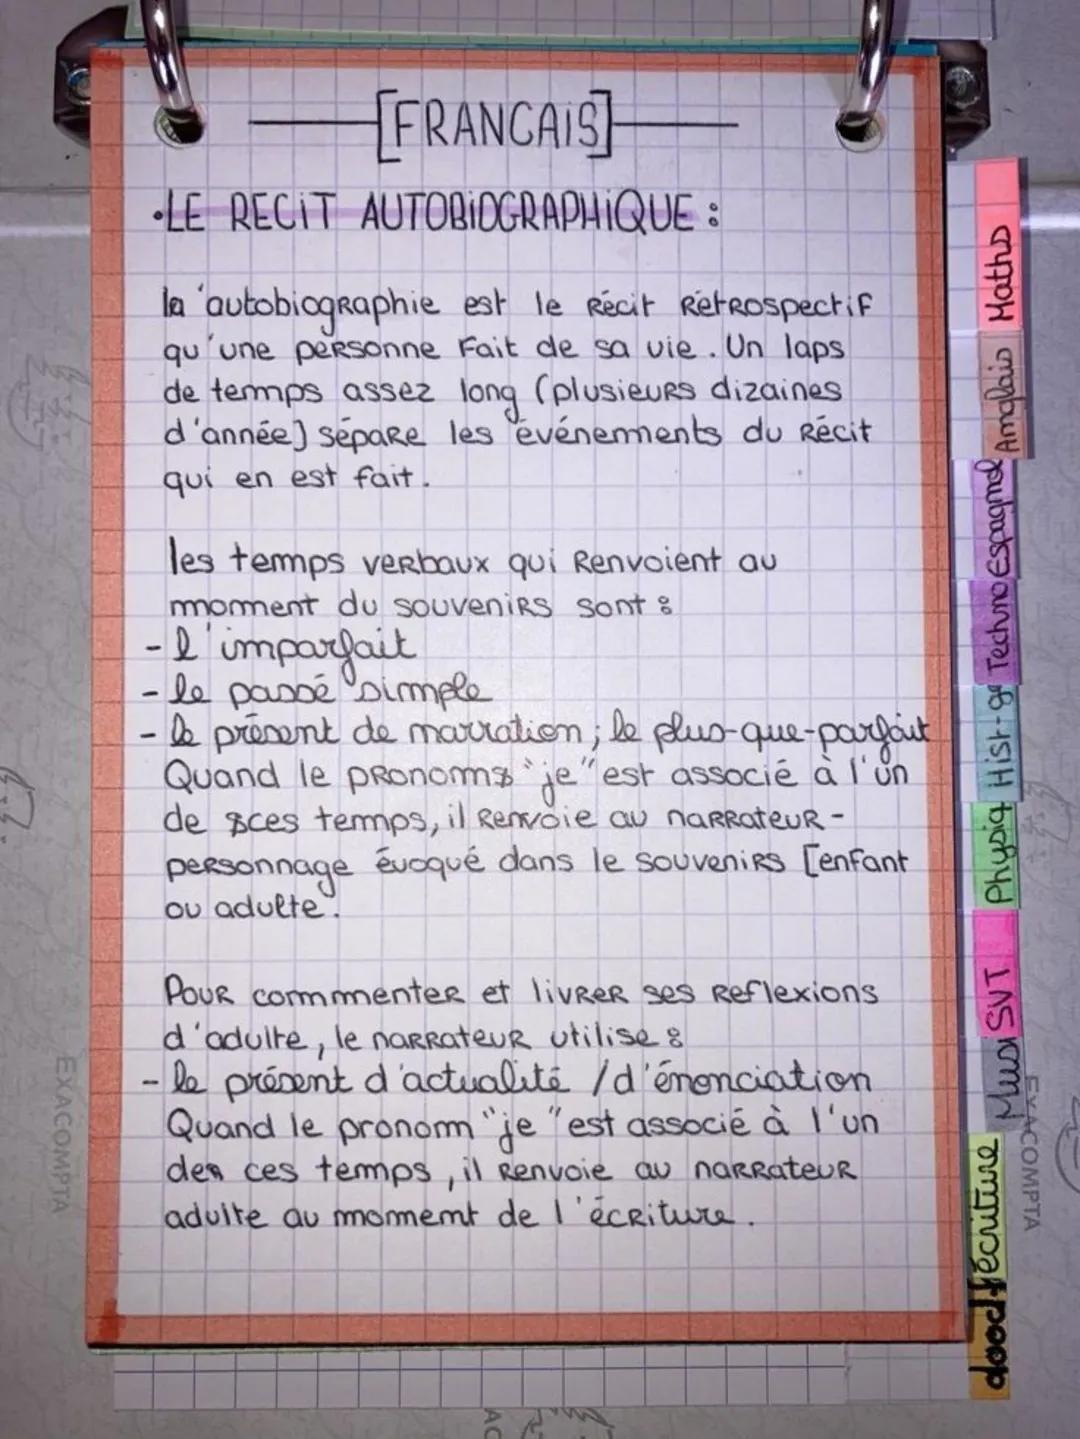 [FRANCAIS]
•LE RECIT AUTOBIOGRAPHIQUE :
la 'autobiographie est le Récit Rétrospectif
qu'une personne Fait de sa vie. Un laps
de temps assez long (plusieurs dizaines
d'année) sépare les événements du Récit
qui en est fait.
les temps verbaux qui Renvoient au
moment du souvenirs sont :
- l'imparfait
- le passé simple
- le présent de narration ; le plus-que-parfait
Quand le pronoms "je" est associé à l'un
de ces temps, il Renvoie au narrateur-
personnage évoqué dans le souvenirs [enfant
ou adulte.
Pour commenter et livrer ses Reflexions
d'adulte, le narrateur utilise :
- le présent d'actualité / d'énonciation
Quand le pronom "je" est associé à l'un
des ces temps, il Renvoie au narrateur
adulte au moment de l'écriture.
Maths
Anglais
Espagnol
Techno
Hist-gé
Physiq
SVT
Musi
écriture
EXACOMPTA
EXACOMPTA